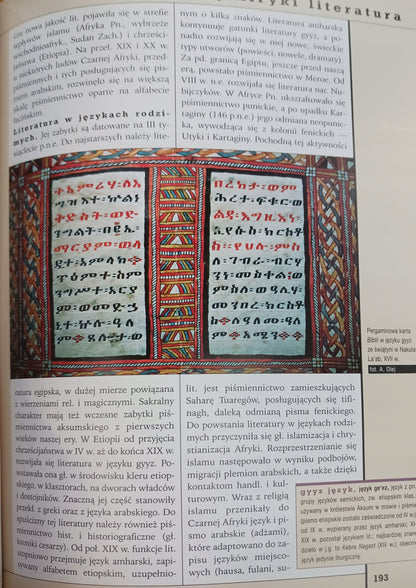 ryki literatura
czu nowa jakość lit. pojawiła się w strefie
wpływów islamu (Afryka Pn., wybrzeże
wschodnioafryk., Sudan Zach.) i chrześci-
jaństwa (Etiopia). Na przeł. XIX i XX w.
niektórych ludów Czarnej Afryki, przed-
piśmiennych i tych posługujących się pis-
mem arabskim, rozwinęło się na większą
skalę piśmiennictwo oparte na alfabecie
łacińskim.
Literatura w językach rodzi-
mych. Jej zabytki są datowane na III ty-
siąclecie p.n.e. Do najstarszych należy lite-
nym o kilka znaków. Literatura amharska
kontynuuje gatunki literatury gyyz, a po-
nadto rozwijają się w niej nowe, świeckie
typy utworów (powieści, nowele, dramaty).
Za pd. granicą Egiptu, jeszcze przed naszą
erą, powstało piśmiennictwo w Meroe. Od
VIII w. n.e. rozwijała się literatura nar. Nu-
bijczyków. W Afryce Pn. ukształtowało się
piśmiennictwo punickie, a po upadku Kar-
taginy (146 p.n.e.) jego odmiana neopunic-
ka, wywodząca się z kolonii fenickich –
Utyki i Kartaginy. Pochodną tej aktywności
ተአምሪሃ፡ለእ
ግዝእተ፡ኵልነ
ቅድስት፡ወድ
ንግል፡በ፪ኤ
ማርያም፡ወላ
ዲተ፡አምላክ፨
ጥዕምተ፡ስም
ንግሥተ፡አርያ
ም፡ወመድኃ
ኒተ፡ኵሉ፡ዓለ
ም፡
በረከታ፡ወም
ሕረተ፡ፍቁር፡ወ
ልዳ፡እግዚእነ፡
ኢየሱስ፡ክርስቶ
ስ፡፡የሀሉ፡ምስ
ለ፡ገብሩ፡ብርሃ
ምስለ፡ወዓሊሃ፡
መንበረ፡ክርስቶ
ስ፡ለዓለመ፡ዓለ
ም፨አሜን፨
Pergaminowa karta
Biblii w języku gyyz
ze świątyni w Nakuta
La'ab, XVII w.
fot. A. Olej
ratura egipska, w dużej mierze powiązana
z wierzeniami rel. i magicznymi. Sakralny
charakter mają też wczesne zabytki piś-
miennictwa aksumskiego z pierwszych
wieków naszej ery. W Etiopii od przyjęcia
chrześcijaństwa w IV w. aż do końca XIX w.
rozwijała się literatura w języku gyyz. Po-
wstawała ona gł. w środowisku kleru etiop-
skiego, w klasztorach, na dworach władców
i dostojników. Znaczną jej część stanowiły
przekł. z greki oraz z języka arabskiego. Do
spuścizny tej literatury należy również piś-
miennictwo hist. i historiograficzne (gł.
kroniki cesarzy). Od poł. XIX w. funkcje lit.
stopniowo przejmuje język amharski, zapi-
sywany alfabetem etiopskim, uzupełnio-
lit. jest piśmiennictwo zamieszkujących
Saharę Tuaregów, posługujących się tifi-
nagh, daleką odmianą pisma fenickiego.
Do powstania literatury w językach rodzi-
mych przyczyniła się gł. islamizacja i chry-
stianizacja Afryki. Rozprzestrzenianie się
islamu następowało w wyniku podbojów,
migracji plemion arabskich, a także dzięki
kontaktom handl. i kul-
turowym. Wraz z religią
islamu przenikały do
Czarnej Afryki język i pi-
smo arabskie (adżami),
które adaptowano do za-
pisu języków miejsco-
wych (hausa, fulani, su-
gyyz język, język ge'ez, język z pn.
grupy języków semickich, zw. etiopskim klas.;
używany w królestwie Aksum w mowie i piśmie
(pismo etiopskie zostało zaświadczone od IV w.);
od IX w. wypierany przez język amharski; do
XIX w. pozostał językiem lit.; najbardziej znane
dzieło w j.g. to Kebra Nagast (XIV w.); obecnie
język jedynie liturgiczny.
193